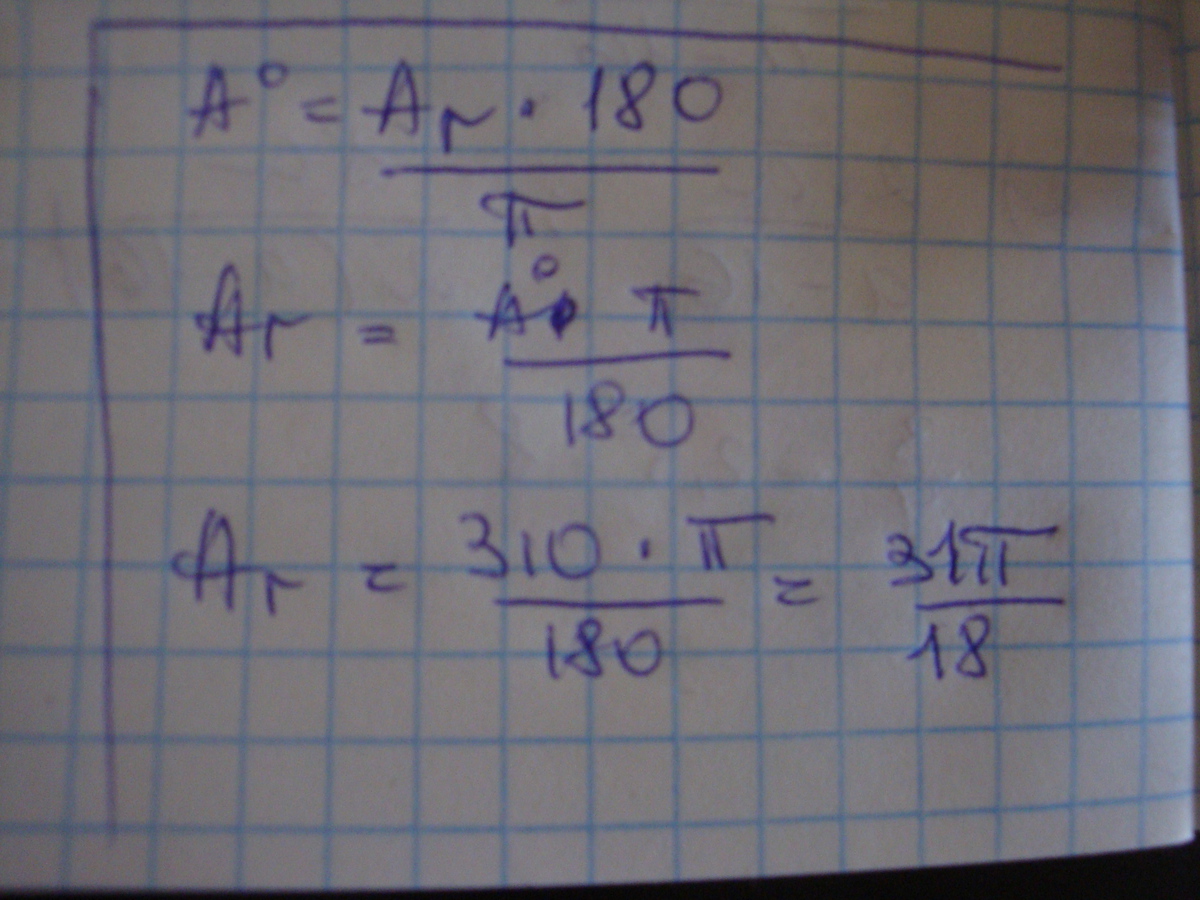 A° = Ar · 180 / π
Ar = A° π / 180
Ar = 310 · π / 180 = 31π / 18